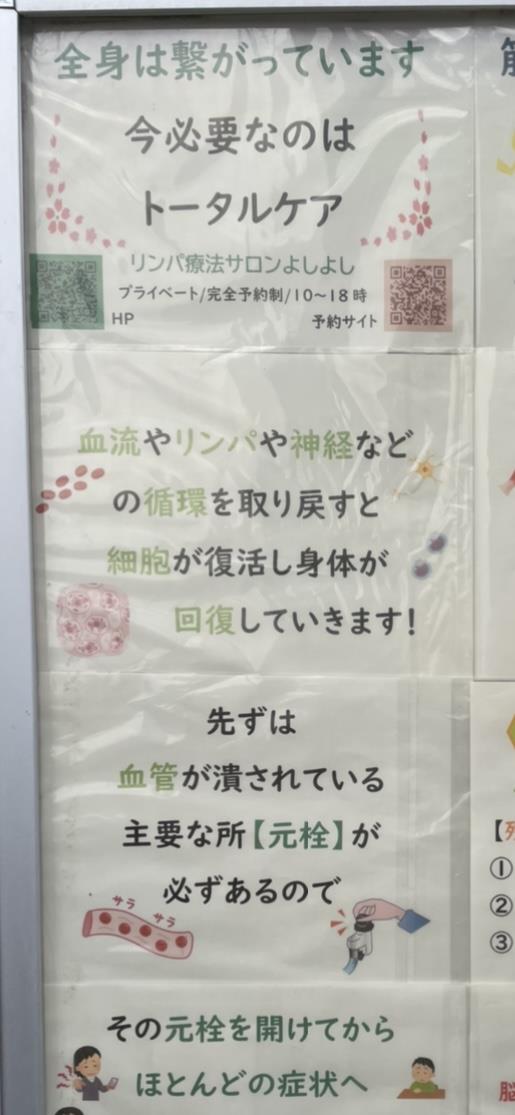 全身は繋がっています
今必要なのは
トータルケア
リンパ療法サロンよしよし
プライベート/完全予約制/10～18時
HP
予約サイト
血流やリンパや神経など
の循環を取り戻すと
細胞が復活し身体が
回復していきます!
先ずは
血管が潰されている
主要な所【元栓】が
必ずあるので
サラ
サラ
その元栓を開けてから
ほとんどの症状へ
①
②
③